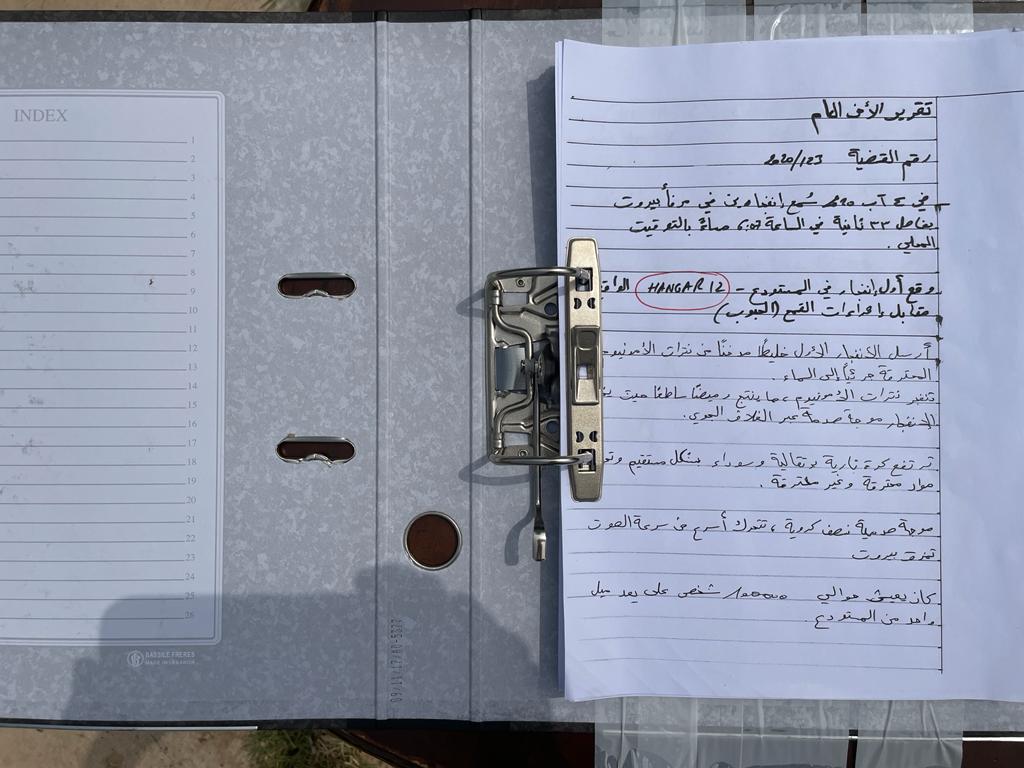 INDEX
1
2
3
4
5
6
7
8
9
10
11
12
13
14
15
16
17
18
19
20
21
22
23
24
25
26
BASSILE FRERES
MADE IN LEBANON
09/11/17/80-5377
تقرير الأمن العام
رقم القضية 2020/123
في ٤ آب سُمع إنفجارين في مرفأ بيروت
بفاصل ٣٣ ثانية في الساعة 6:07 مساءً بالتوقيت
المحلي .
وقع أول إنفجار في المستودع - HANGAR 12
مقابل إهراءات القمح (الحبوب)
أرسل الانفجار الأول خليطًا مدخنًا من نترات الأمونيوم
المحترقة جزئياً إلى السماء .
تنفجر نترات الأمونيوم ، مما ينتج وميضًا ساطعًا حيث
الانفجار موجة صدمة عبر الغلاف الجوي .
ترتفع كرة نارية برتقالية وسوداء بشكل مستقيم
مواد محترقة وغير محترقة .
موجة صدمية نصف كروية ، تتحرك أسرع من سرعة الصوت
تمزق بيروت
كان يعيش حوالي 100000 شخص على بعد ميل
واحد من المستودع .